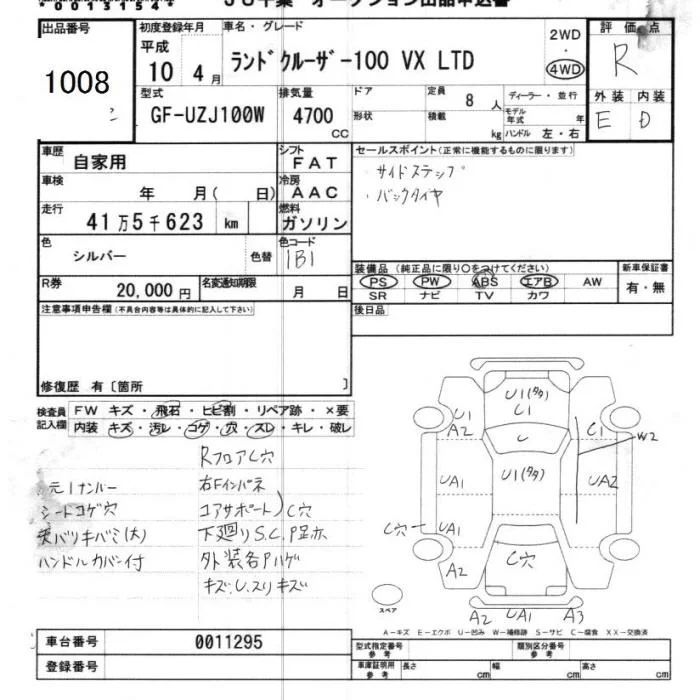 出品番号
1008
初度登録年月
平成
10年4月
車名・グレード
ランドクルーザー100 VX LTD
2WD
・
4WD
評価点
R
外装 内装
E D
型式
GF-UZJ100W
排気量
4700
CC
ドア
形状
定員
8 人
積載
kg
ディーラー・並行
モデル年式 年
ハンドル 左・右
車歴
自家用
シフト
FAT
車検
年 月( 日)
冷房
AAC
走行
41万5千623 km
燃料
ガソリン
色
シルバー
色替
色コード
1B1
R券
20,000円
名変通知期限
月 日
セールスポイント(正常に機能するものに限ります)
・サイドステップ
・バックタイヤ
装備品 (純正品に限り○をつけてください)
PS PW ABS エアB AW
SR ナビ TV カワ
新車保証書
有・無
後日品
注意事項申告欄 (不具合内容等は具体的に記入して下さい)
修復歴 有〔箇所 〕
検査員記入欄
FW キズ・飛石・ヒビ割・リペア跡・×要
内装 キズ・汚レ・コゲ・穴・スレ・キレ・破レ
RフロアC穴
元1ナンバー
右Fインパネ
シートコゲ穴
コアサポート)C穴
下廻りS.C.P足赤
ハンドルカバー付
外装各Pハゲ
キズ.U.スリキズ
U1(タタ)
C1
U1
A2
C1
W2
U1(タタ)
UA1
UA2
UA1
C穴
C穴
A2
A2 UA1 A3
スペア
A−キズ E−エクボ U−凹み W−補修跡 S−サビ C−腐食 XX−交換済
車台番号
0011295
登録番号
型式指定番号
参考
類別区分番号
参考
車庫証明用
参考
長さ cm
幅 cm
高さ cm